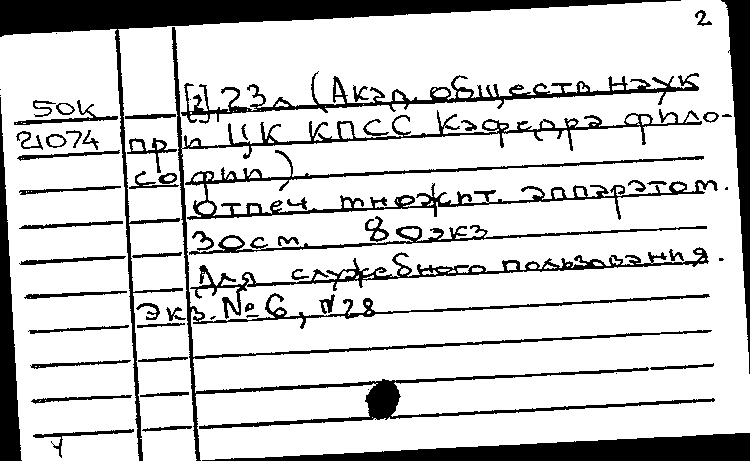 2
50К
[2], 23 л (Акад. обществ. наук
21074 при ЦК КПСС. Кафедра фило-
софии).
Отпеч. множит. аппаратом.
30 см. 80 экз
Для служебного пользования.
Экз. № 6, №28
Ч